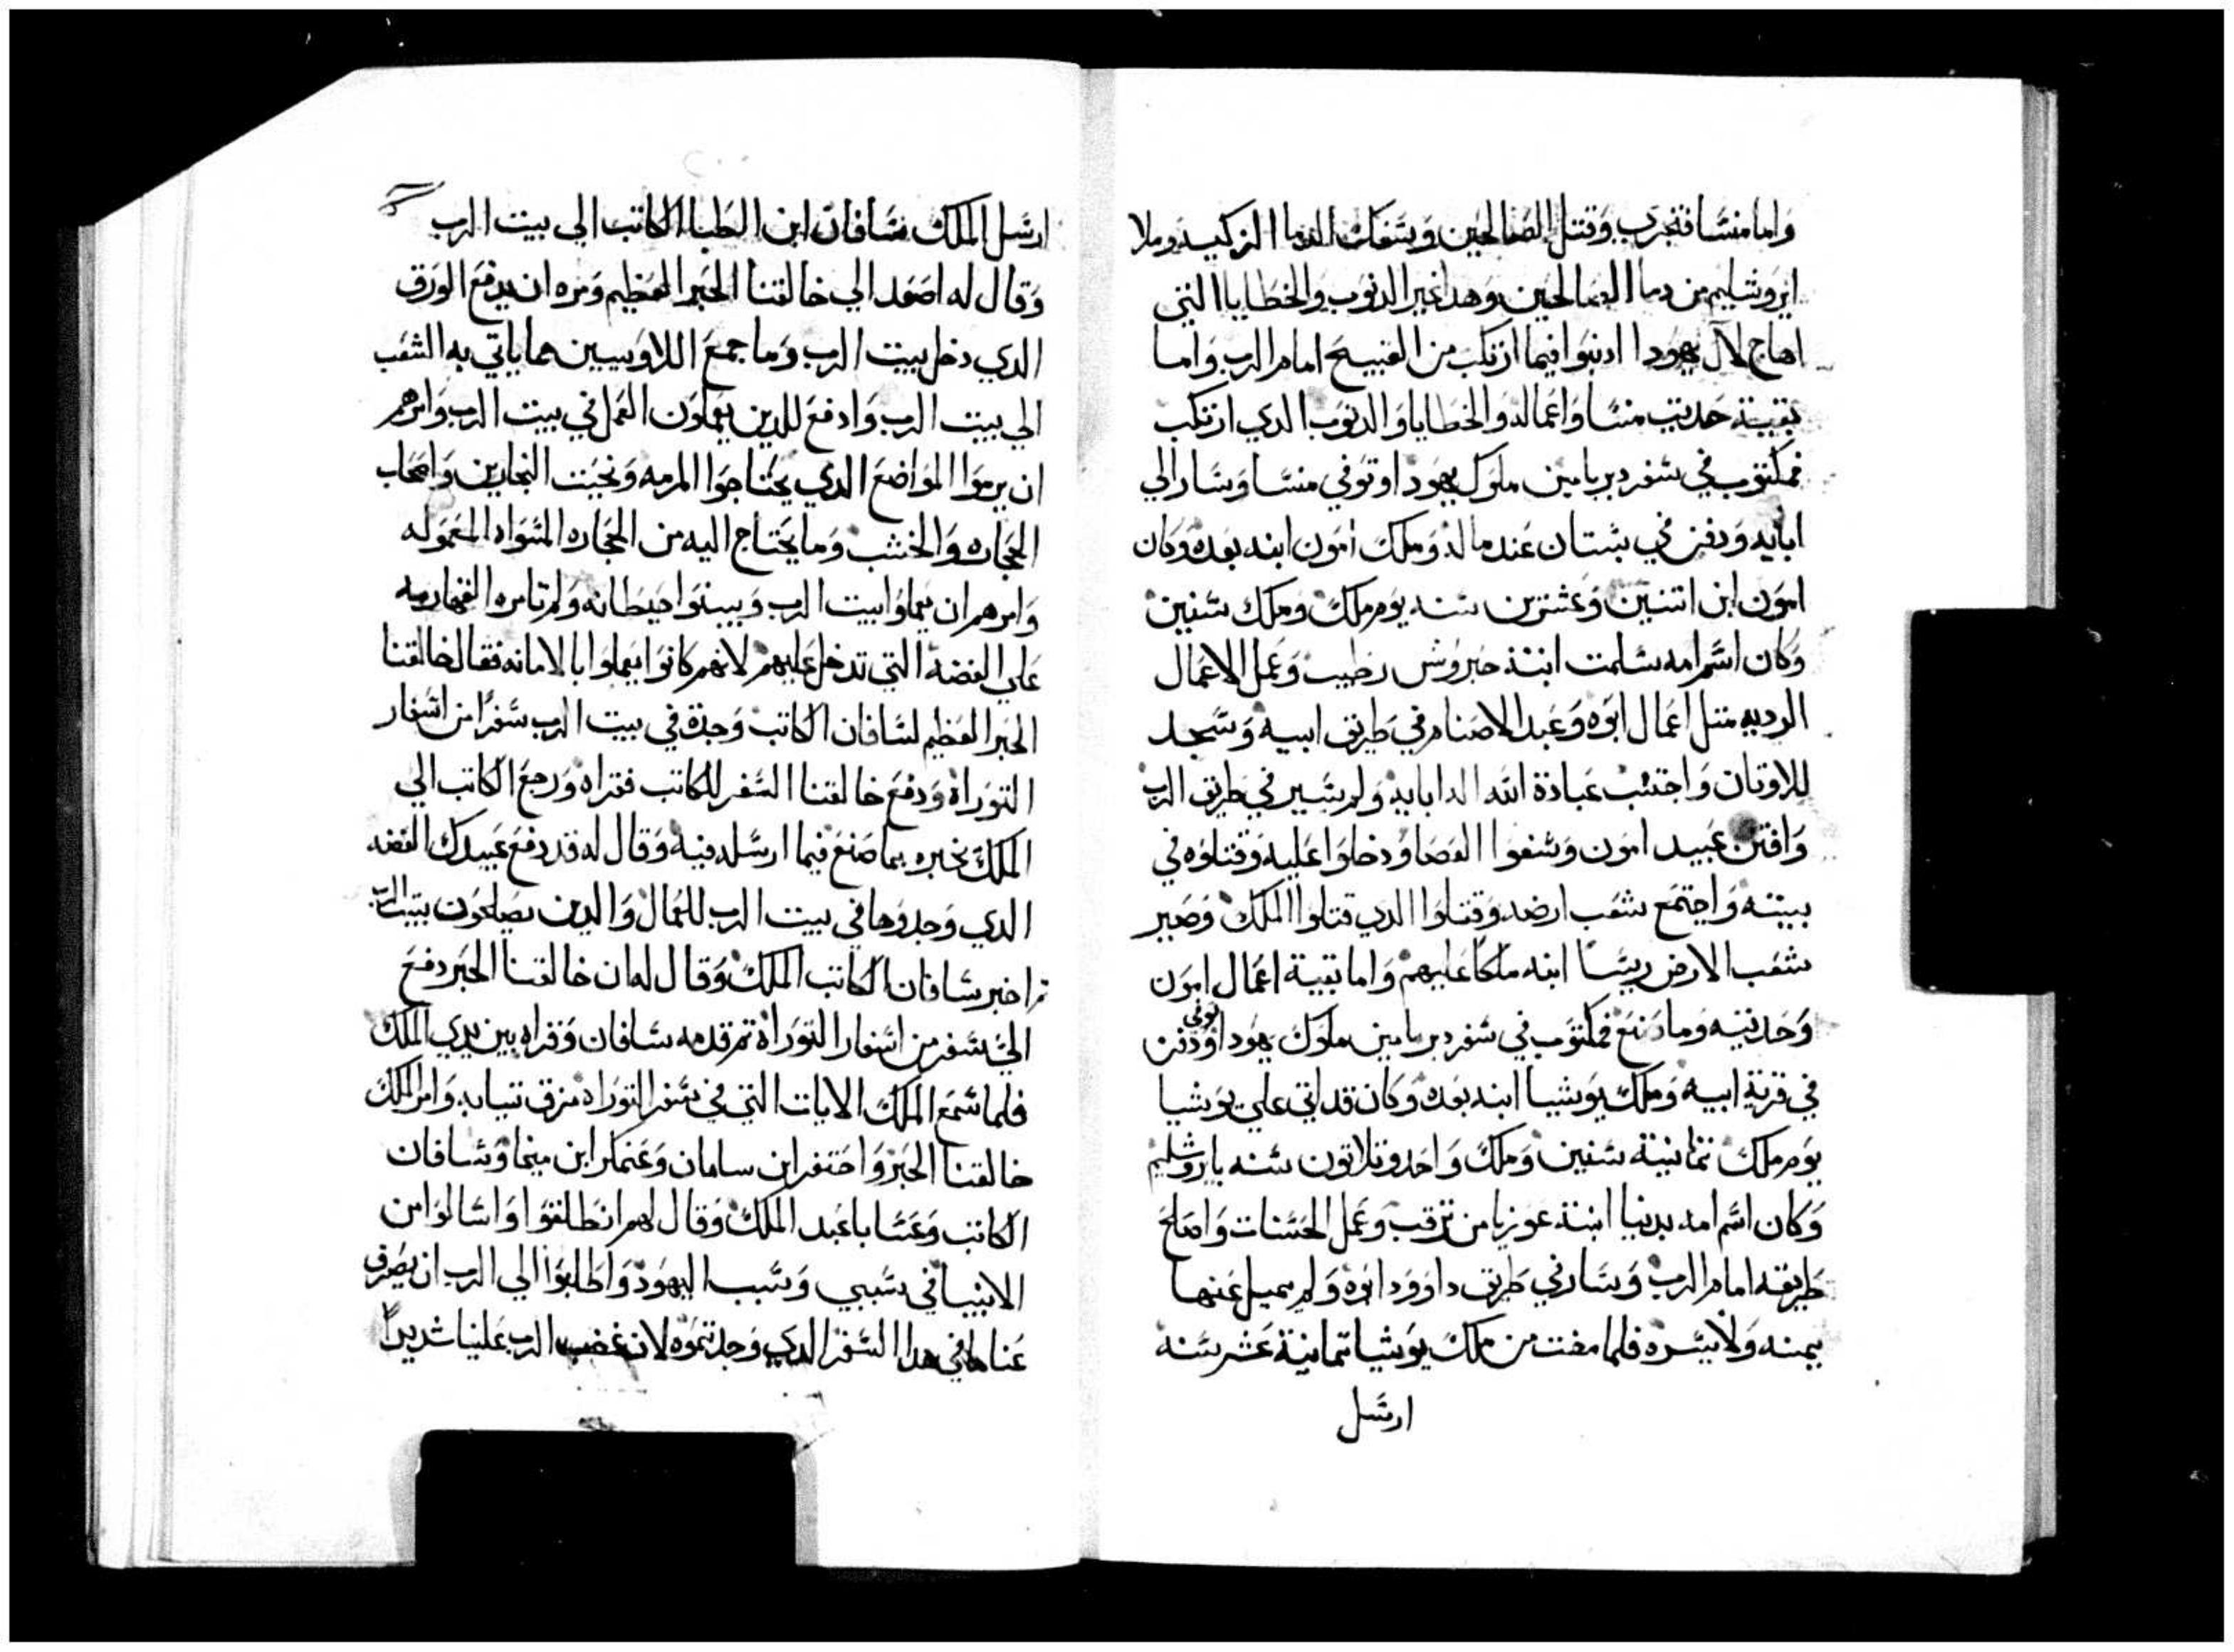 واما منسا فتجرب وقتل الصالحين وسفك الدما الزكيه وملا
ايروشليم من دما الصالحين وهدا غير الدنوب والخطايا التي
اهاج لال يهودا ادنبوا فيما ارتكب من القبيح امام الرب واما
بقية حديت منسا واعماله والخطايا والدنوب الدي ارتكب
فمكتوب في سفر دبريامين ملوك يهودا وتوفي منسا وسار الي
ابايه ودفن في بستان عند ماله وملك امون ابنه بعده وكان
امون ابن اتنين وعشرين سنه يوم ملك وملك سنين
وكان اسم امه سلمت ابنة حبروش رطيب وعمل الاعمال
الرديه متل اعمال ابوه وعبد الاصنام في طريق ابيه وسجد
للاوتان واجتنب عبادة الله اله ابايه ولم يسير في طريق الرب
وافتن عبيد امون وشغوا العصا ودخلوا عليه وقتلوه في
بيته واجتمع شعب ارضه وقتلوا الدي قتلوا الملك وصير
شعب الارض ريسا ابنه ملكا عليهم واما بقية اعمال امون
وحديته وما صنع فمكتوب في سفر دبريامين ملوك يهودا توفي ودفن
في قرية ابيه وملك يوشيا ابنه بعده وكان قد اتي علي يوشيا
يوم ملك تمانية سنين وملك واحد وتلاتون سنه بايروشليم
وكان اسم امه يدنيا ابنة عوزيا من ترقب وعمل الحسنات واصلح
طريقه امام الرب وسار في طريق داوود ابوه ولم يميل عنها
يمنه ولا يسره فلما مضت من ملك يوشيا تمانية عشر سنه
ارسل
ارسل الملك سافان ابن الطبا الكاتب الي بيت الرب
وقال له اصعد الي خالقنا الحبر العظيم ومره ان يدفع الورق
الدي دخل بيت الرب وما جمع اللاويين مما ياتي به الشعب
الي بيت الرب وادفع للدين يعملون العمل في بيت الرب وامرهم
ان يرموا المواضع الدي يحتاجوا المرمه ونحيت النجارين واصحاب
الحجاره والخشب وما يحتاج اليه من الحجاره السواد المعموله
وامرهم ان يعملوا بيت الرب ويبنوا حيطانه ولم تامره القهارمه
علي الفضة التي تدخل عليهم لانهم كانوا يعملوا بالامانه فقال خالقنا
الحبر العظيم لسافان الكاتب وجدة في بيت الرب سفرا من اسفار
التوراة ودفع خالقنا السفر للكاتب فقراه ورجع الكاتب الي
الملك نخبره بما صنع فيما ارسله فيه وقال له قد دفع عبيدك الفضه
الدي وجدوها في بيت الرب للعمال والدين يصلحون بيت الرب
تم اخبر سافان الكاتب الملك وقال له ان خالقنا الحبر دفع
الي سفر من اسفار التوراة تم قدمه سافان وقراه بين يدي الملك
فلما سمع الملك الايات التي في سفر التوراة مزق تيابه وامر الملك
خالقنا الحبر واحتفر ابن سامان وعنكر ابن ميخا وسافان
الكاتب وعسا با عبد الملك وقال لهم انطلقوا واسالوا من
الانبيا في سببي وسبب اليهود واطلبوا الي الرب ان يصرف
عنا ما في هدا السفر الدي وجدتموه لان غضب الرب علينا شديدا